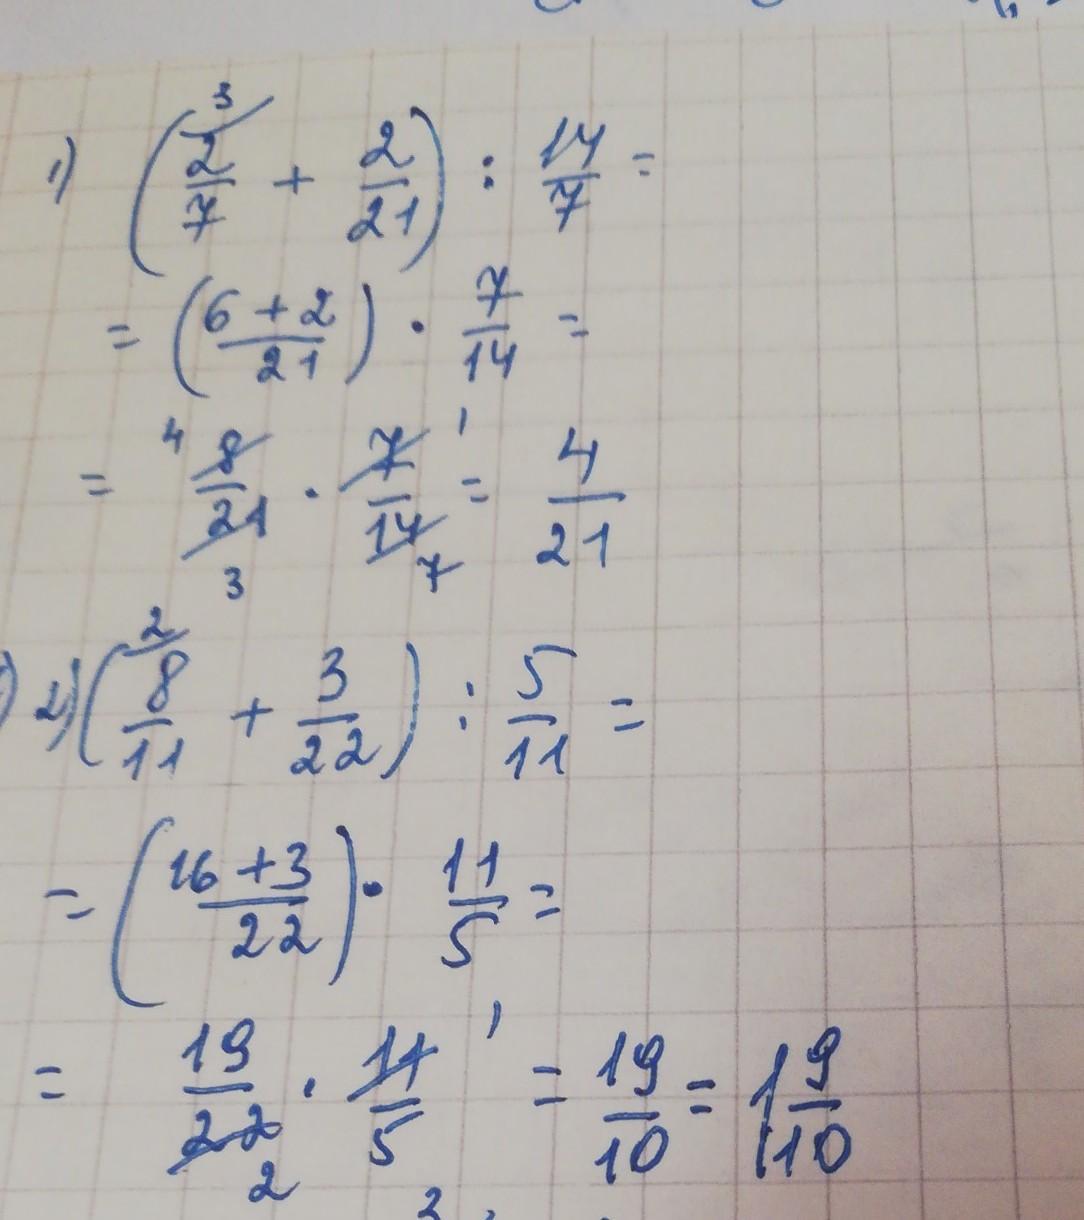 1) (2/7 ³ + 2/21) : 14/7 =
= (6 + 2 / 21) · 7/14 =
= 4 8/21 3 · 7/14 1 7 = 4/21
2) (8/11 ² + 3/22) : 5/11 =
= (16 + 3 / 22) · 11/5 =
= 19/22 2 · 11/5 1 = 19/10 = 1 9/10